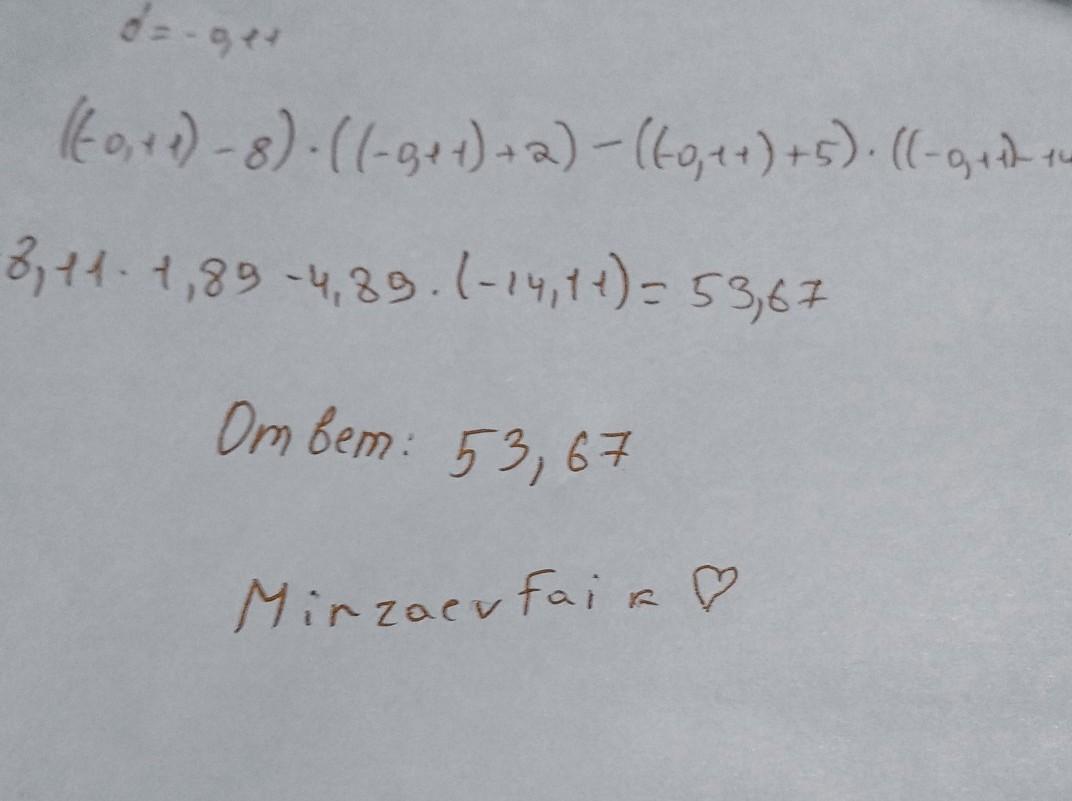 d = -0,11
((-0,11) - 8) · ((-0,11) + 2) - ((-0,11) + 5) · ((-0,11) - 14
8,11 · 1,89 - 4,89 · (-14,11) = 53,67
Ответ: 53,67
Mirzaev Faik ♡